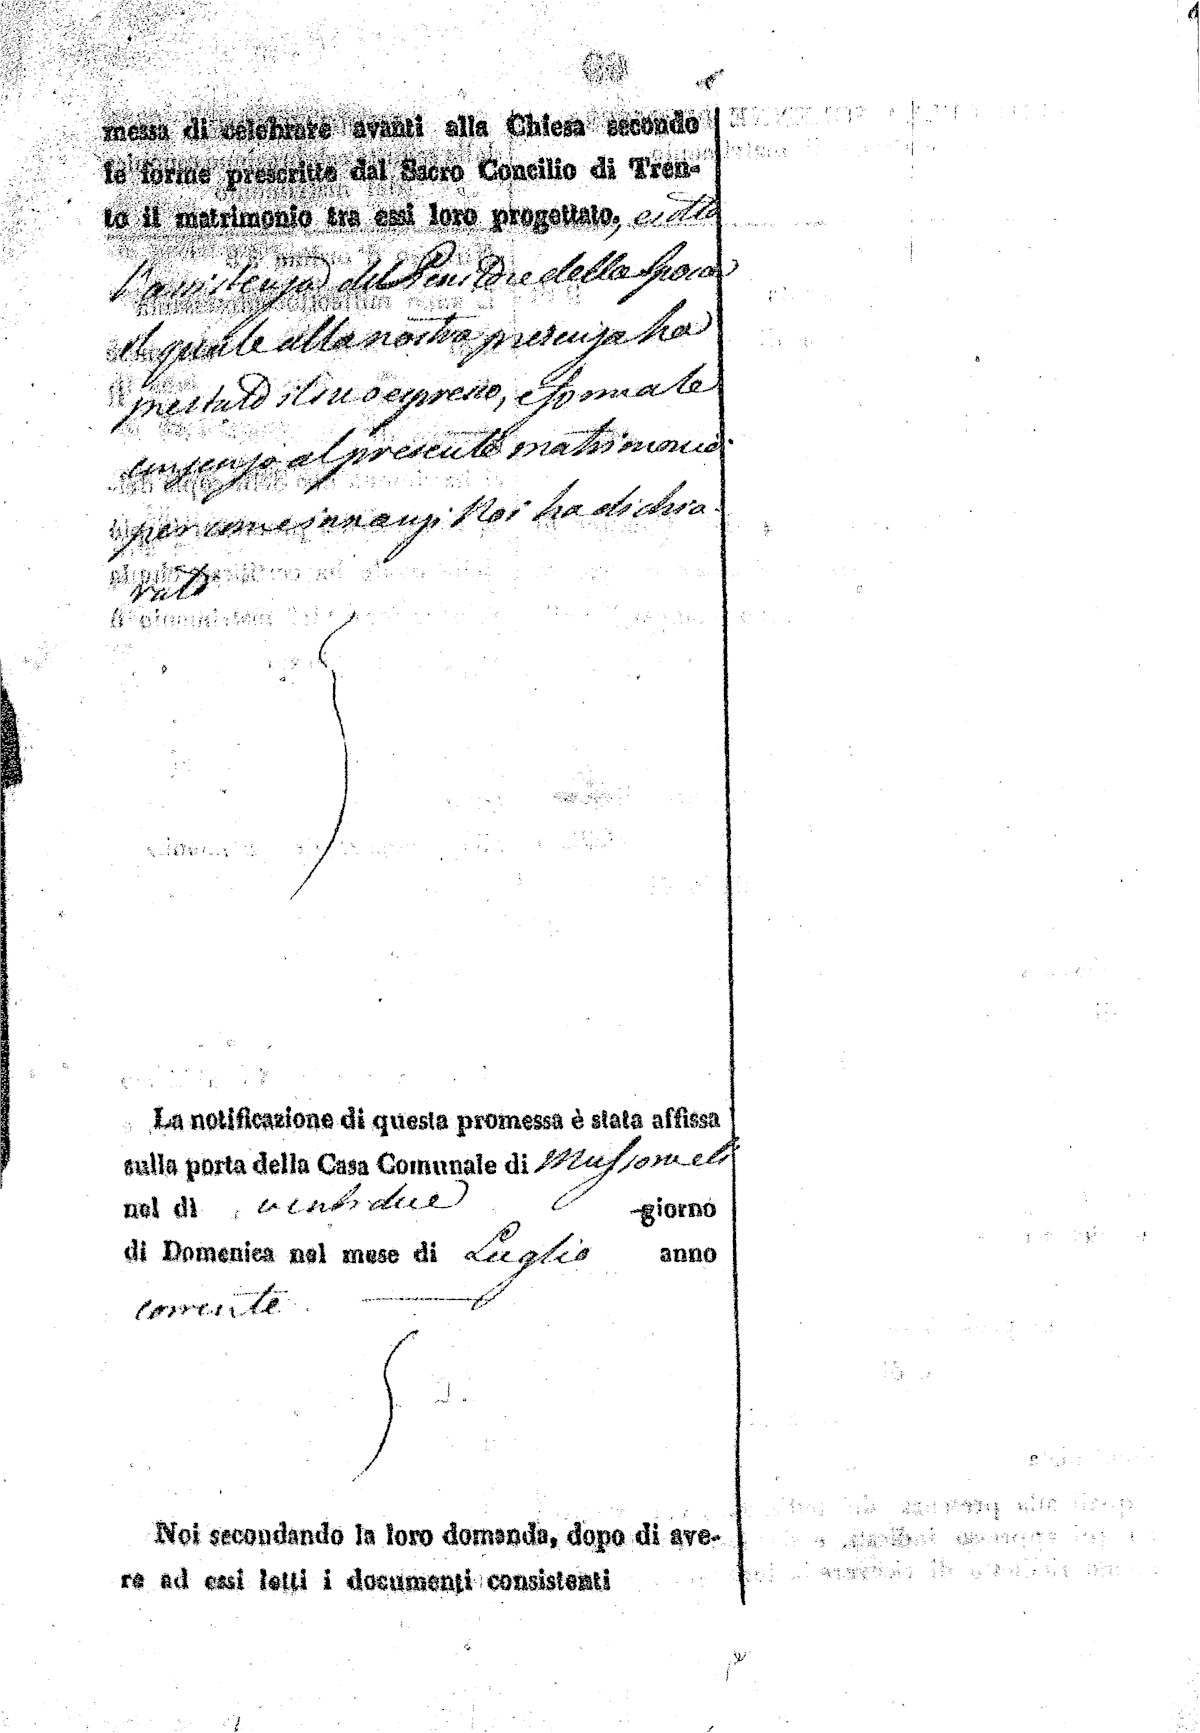 messa di celebrare avanti alla Chiesa secondo
le forme prescritte dal Sacro Concilio di Tren-
to il matrimonio tra essi loro progettato, e sotto
l'assistenza del Genitore della Sposa
il quale alla nostra presenza ha
prestato il suo espresso, e formale
consenso al presente matrimonio
per come innanzi Noi ha dichia-
rato
La notificazione di questa promessa è stata affissa
sulla porta della Casa Comunale di Mussomeli
nel dì ventidue giorno
di Domenica nel mese di Luglio anno
corrente
Noi secondando la loro domanda, dopo di ave-
re ad essi letti i documenti consistenti